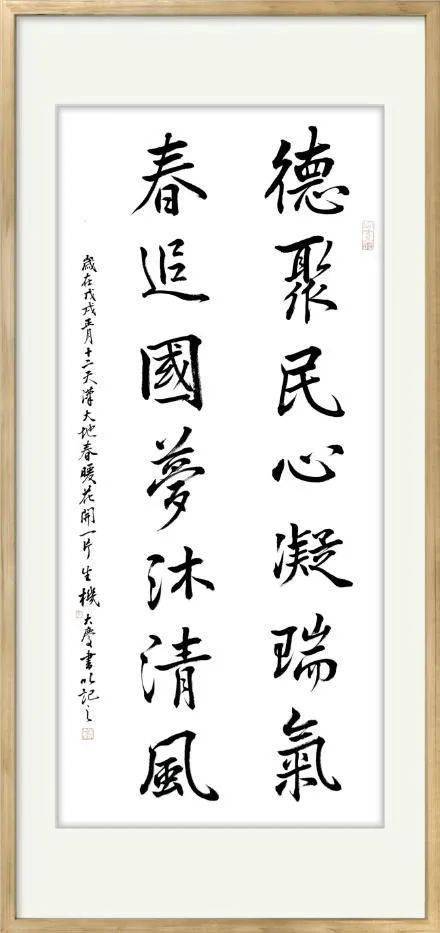 德聚民心凝瑞氣
春追國夢沐清風
歲在戊戌正月十二天漢大地春暖花開一片生機大慶書以記之